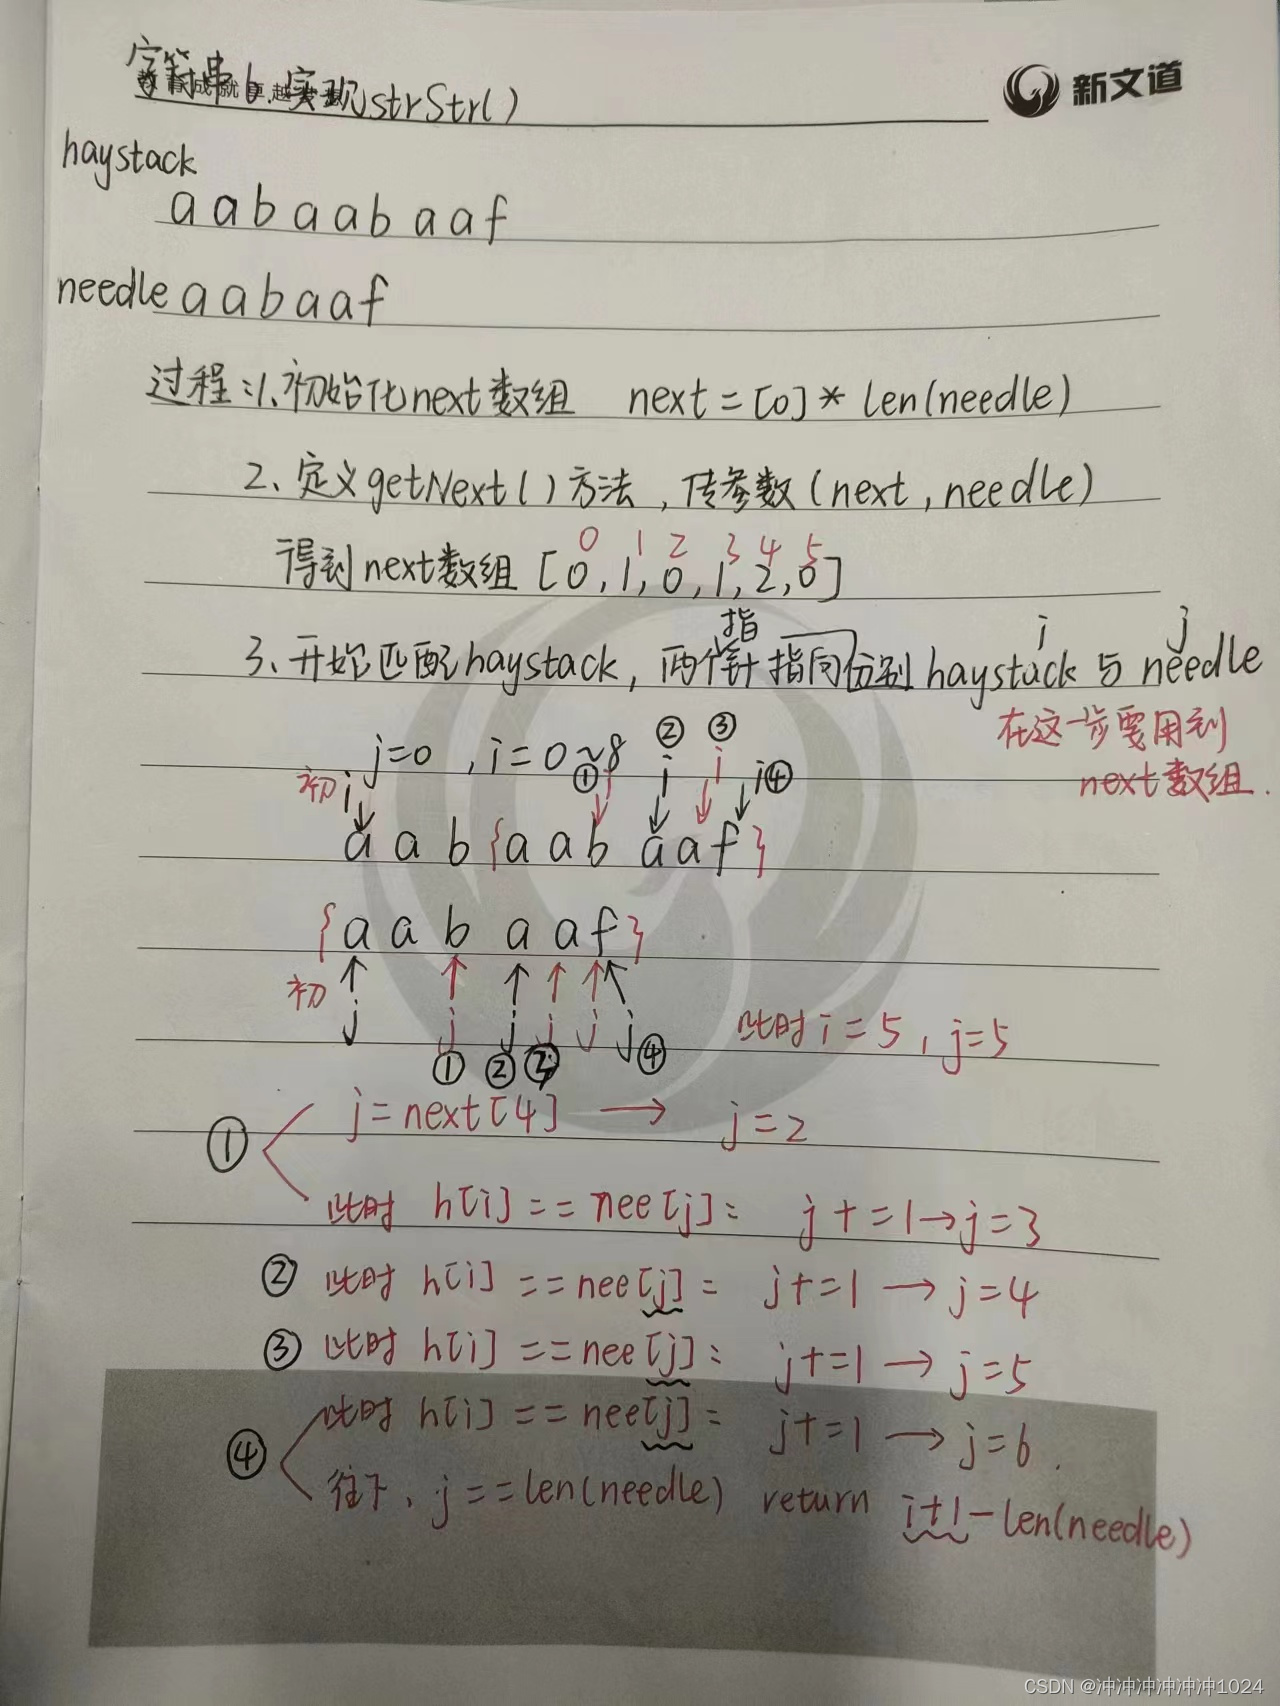 字符串6.实现strStr()
新文道
haystack
a a b a a b a a f
needle a a b a a f
过程:1、初始化next数组 next=[0]*len(needle)
2、定义getNext()方法,传参数(next,needle)
0 1 2 3 4 5
得到next数组[0,1,0,1,2,0]
指 i j
3、开始匹配haystack,两个针指向分别haystack与needle
在这一步要用到
next数组.
② ③
j=0,i=0~8 i i
初 i ① i i④
a a b {a a b a a f}
{a a b a a f}
初
j j j j j j
① ② ③ ④
此时i=5,j=5
① j=next[4] → j=2
此时 h[i]==nee[j]: j+=1→j=3
② 此时 h[i]==nee[j]: j+=1→j=4
③ 此时 h[i]==nee[j]: j+=1→j=5
④ 此时 h[i]==nee[j]: j+=1→j=6.
往下、j==len(needle) return i+1-len(needle)
CSDN @冲冲冲冲冲冲1024